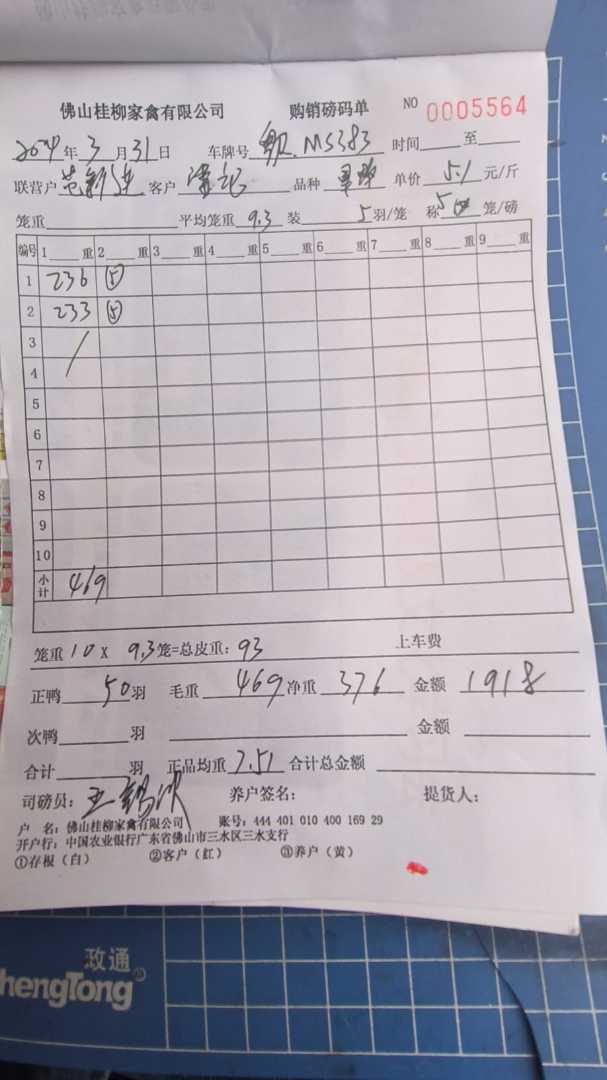 佛山桂柳家禽有限公司 购销磅码单 NO 0005564
2024年3月31日 车牌号 M5383 时间 至
联营户 客户 品种 单价 5.1 元/斤
笼重 平均笼重 9.3 装 5 羽/笼 称 5 笼/磅
编号 1 重 2 重 3 重 4 重 5 重 6 重 7 重 8 重 9 重
1 236 ⑤
2 233 ⑤
3 /
4
5
6
7
8
9
10
小计 469
笼重 10 X 9.3 笼=总皮重: 93 上车费
正鸭 50 羽 毛重 469 净重 376 金额 1918
次鸭 羽 金额
合计 羽 正品均重 7.51 合计总金额
司磅员: 养户签名: 提货人:
户 名: 佛山桂柳家禽有限公司 账号: 444 401 010 400 169 29
开户行: 中国农业银行广东省佛山市三水区三水支行
①存根(白) ②客户(红) ③养户(黄)
政通
ShengTong